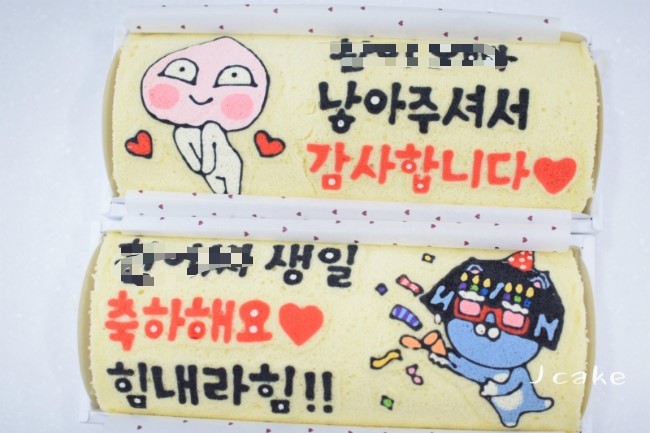 낳아주셔서
감사합니다♥
생일
축하해요♥
힘내라힘!!
J cake